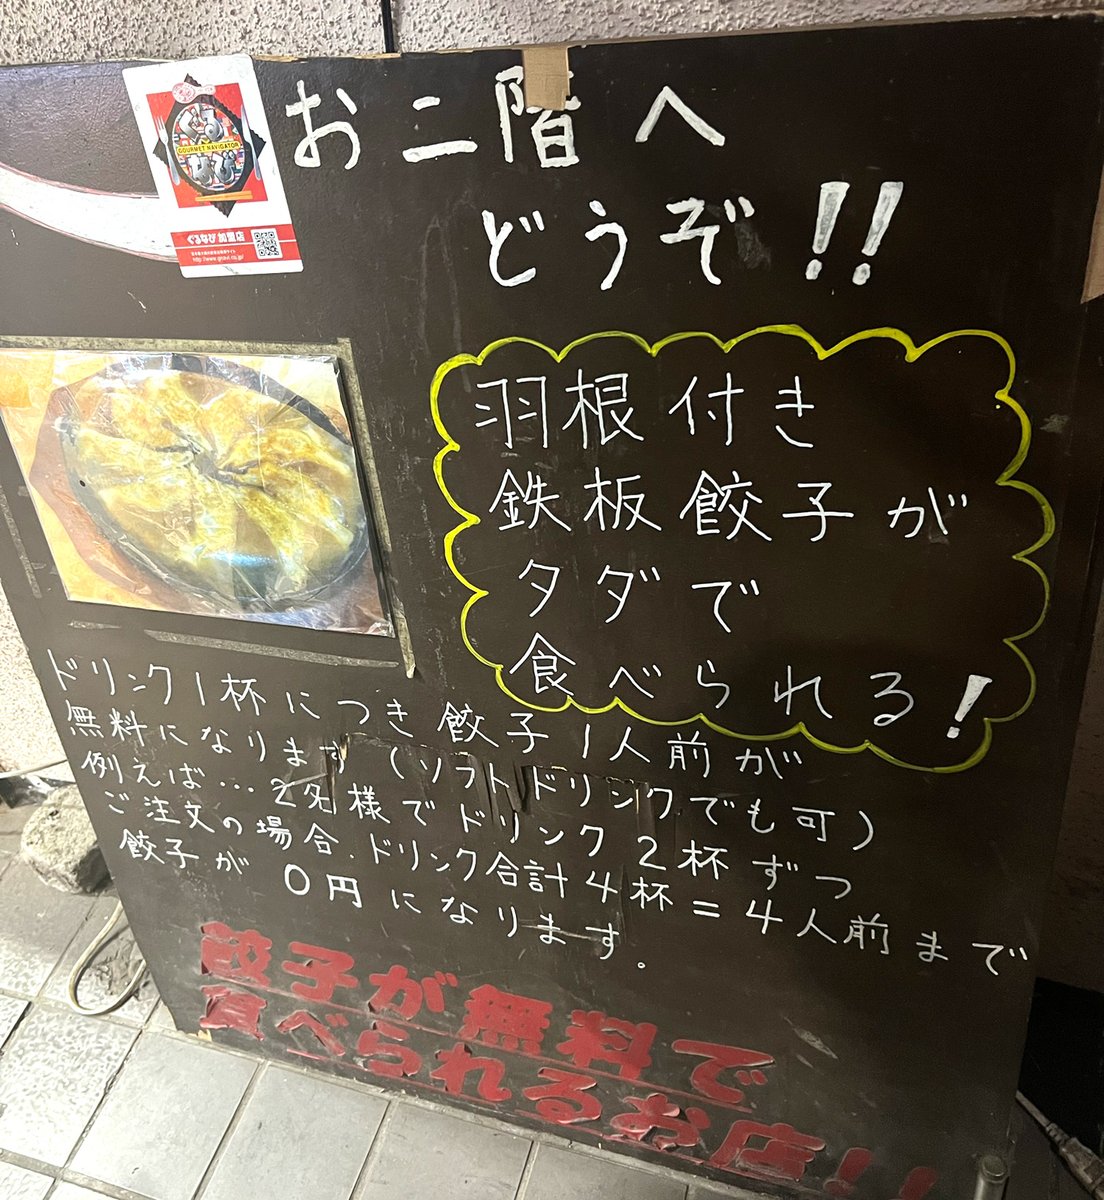 お二階へ
どうぞ!!
ぐるなび
GOURMET NAVIGATOR
ぐるなび 加盟店
http://www.gnavi.co.jp/
羽根付き
鉄板餃子が
タダで
食べられる!
ドリンク1杯につき餃子1人前が
無料になります(ソフトドリンクでも可)
例えば…2名様でドリンク2杯ずつ
ご注文の場合、ドリンク合計4杯=4人前まで
餃子が0円になります。
餃子が無料で
食べられるお店!!